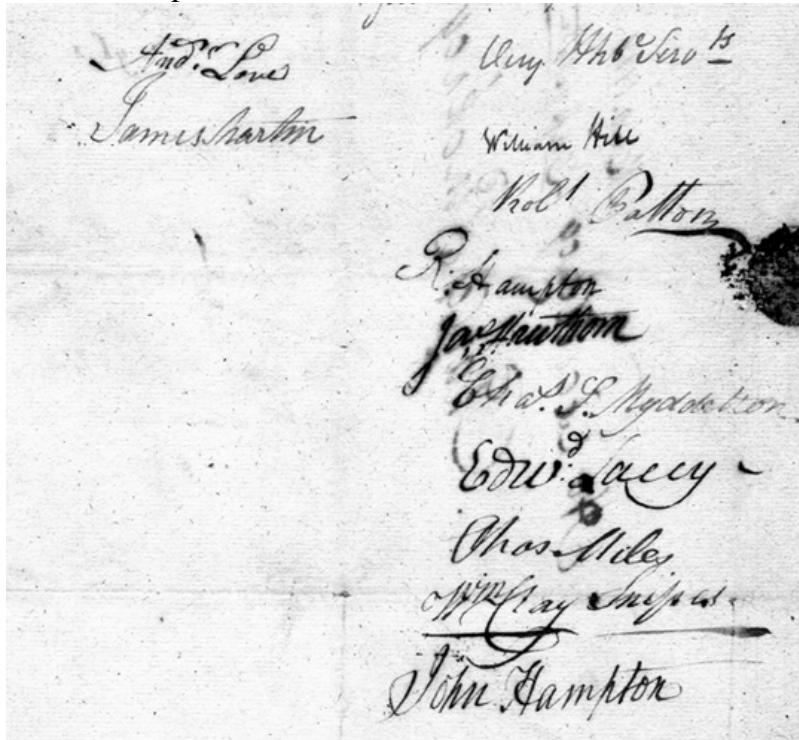 And.w Love
James Martin
Hble Servts
William Hill
Robt Patton
R. Hampton
Jas Hawthorn
Chas. S. Myddelton
Edwd. Lacey
Chas Miles
Wm Clay Snipes
John Hampton